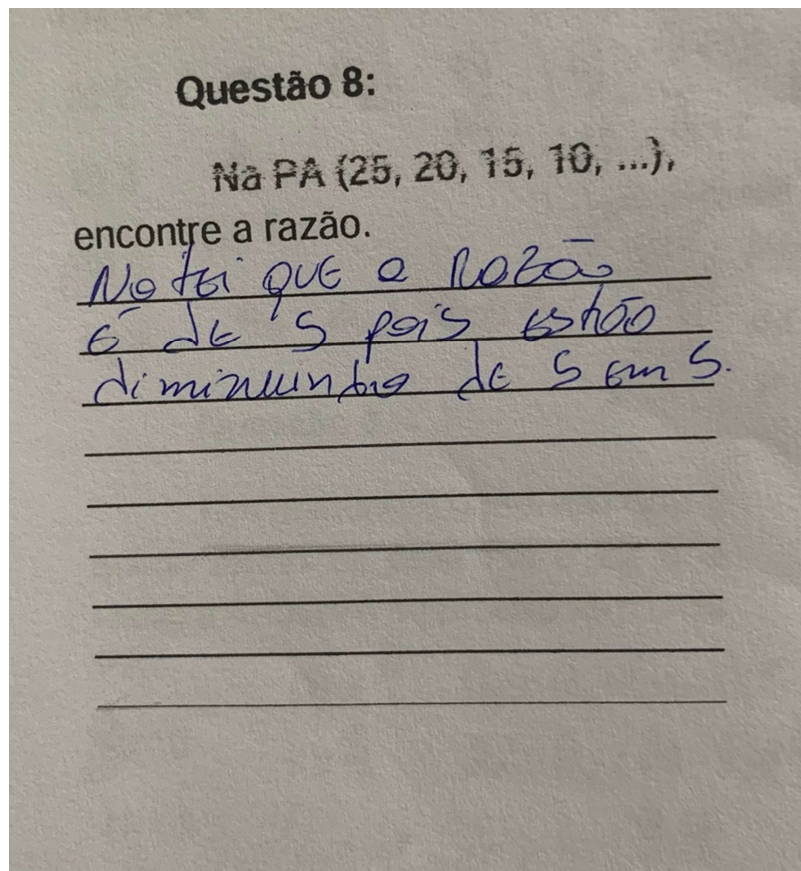 Questão 8:
Na PA (25, 20, 15, 10, ...),
encontre a razão.
Notei que a razão
é de 5 pois estão
diminuindo de 5 em 5.